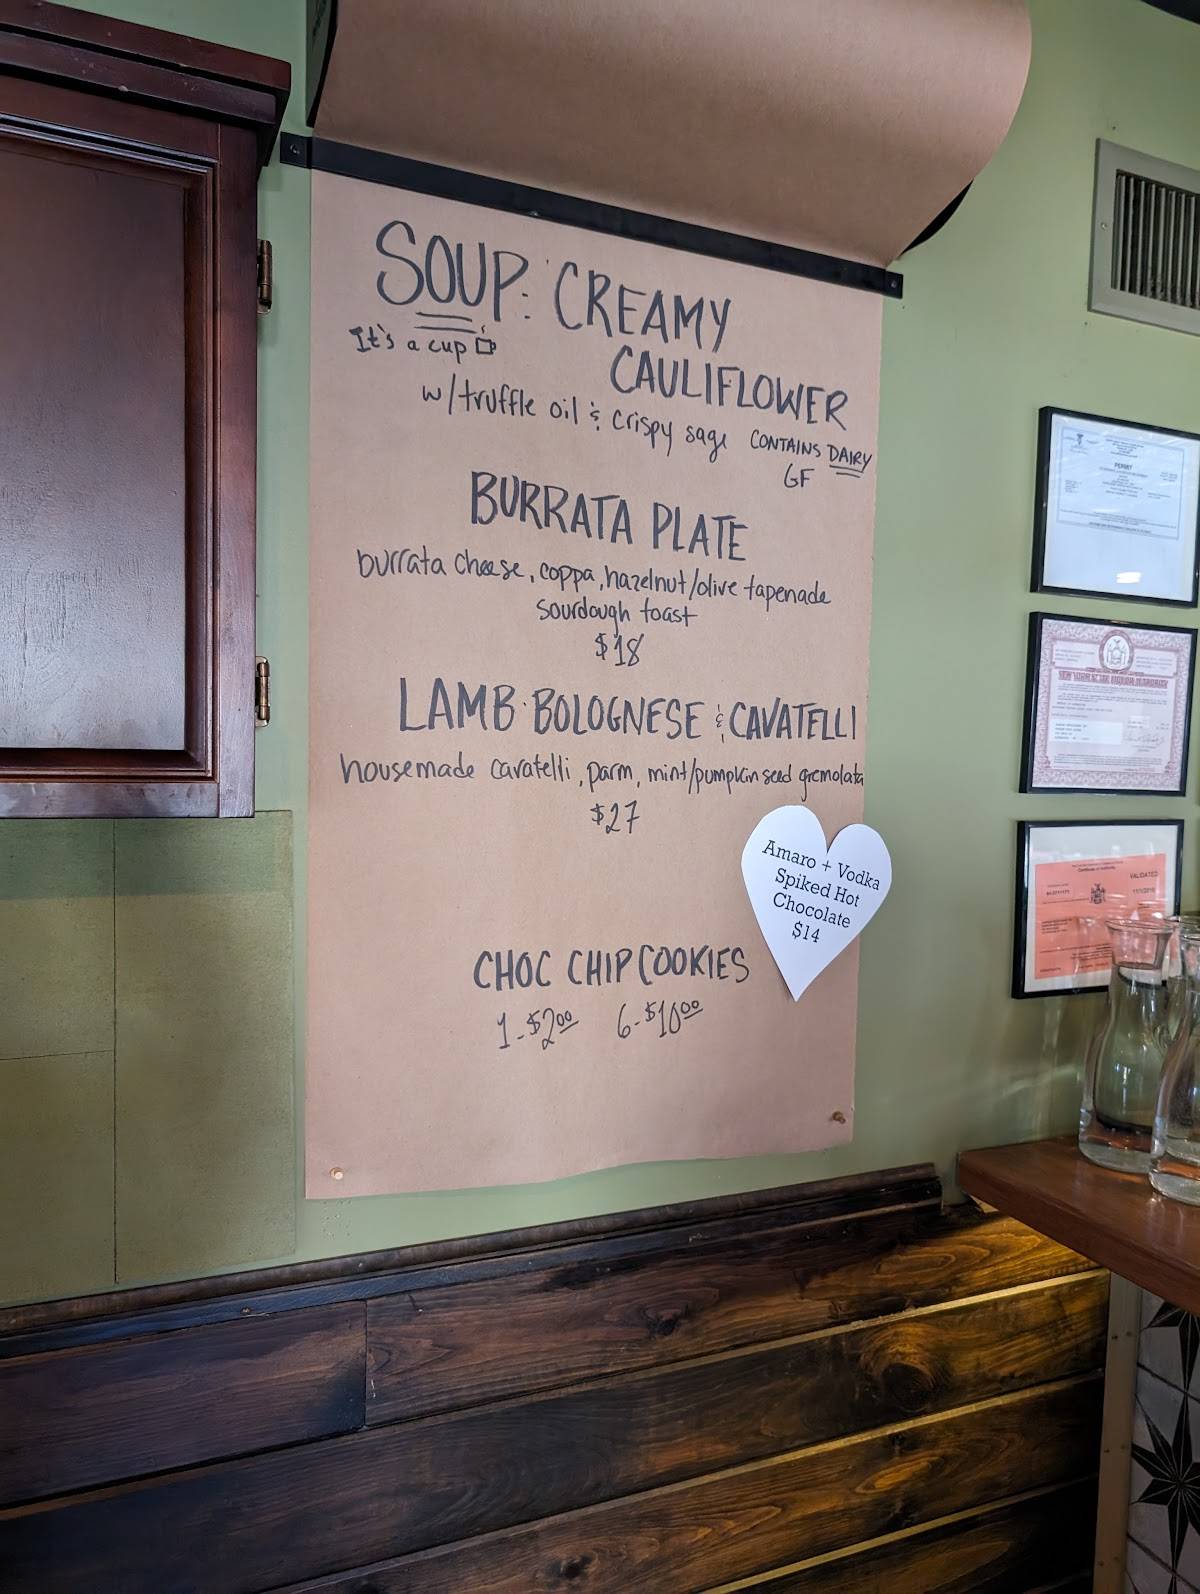 SOUP: CREAMY
It's a cup
CAULIFLOWER
w/truffle oil & crispy sage CONTAINS DAIRY
GF
BURRATA PLATE
burrata cheese, coppa, hazelnut/olive tapenade
sourdough toast
$18
LAMB BOLOGNESE & CAVATELLI
housemade cavatelli, parm, mint/pumpkin seed gremolata
$27
Amaro + Vodka
Spiked Hot
Chocolate
$14
CHOC CHIP COOKIES
1-$2.00 6-$10.00
PERMIT
NEW YORK STATE LIQUOR AUTHORITY
Certificate of Authority
VALIDATED